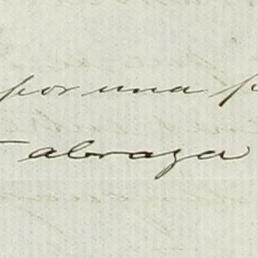 por una
abraza